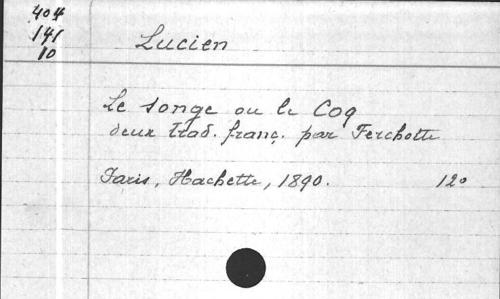 404
141
10
Lucien
Le songe ou le Coq
deux trad. franç. par Ferchotte
Paris, Hachette, 1890. 12°